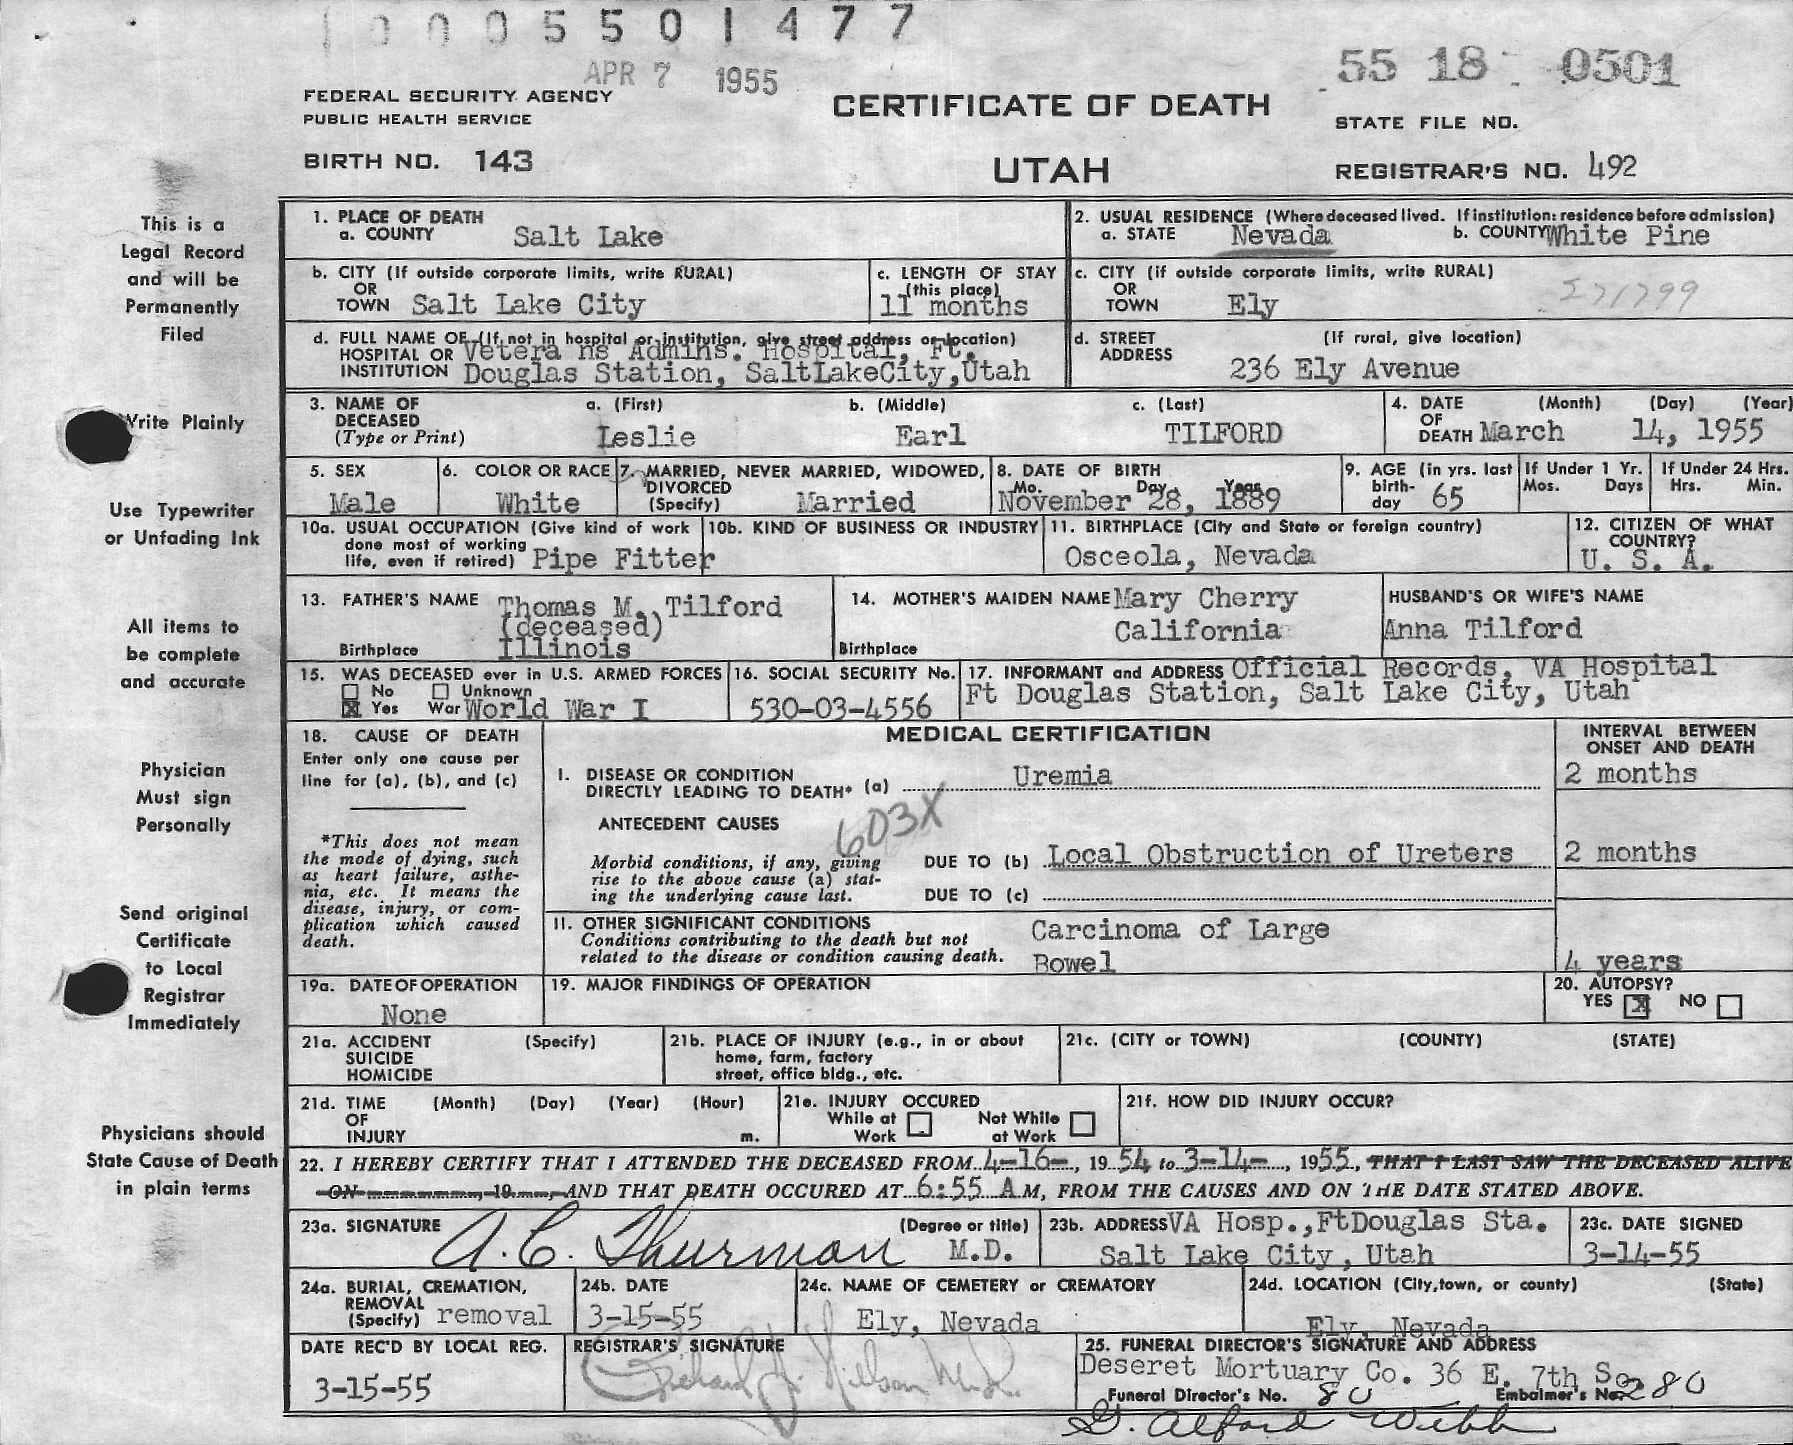 1 0 0 0 5 5 0 1 4 7 7
APR 7 1955
55 18 0501
FEDERAL SECURITY AGENCY
PUBLIC HEALTH SERVICE
CERTIFICATE OF DEATH
STATE FILE NO.
BIRTH NO. 143
UTAH
REGISTRAR'S NO. 492
This is a
Legal Record
and will be
Permanently
Filed
Write Plainly
Use Typewriter
or Unfading Ink
All items to
be complete
and accurate
Physician
Must sign
Personally
Send original
Certificate
to Local
Registrar
Immediately
Physicians should
State Cause of Death
in plain terms
1. PLACE OF DEATH
a. COUNTY Salt Lake
2. USUAL RESIDENCE (Where deceased lived. If institution: residence before admission)
a. STATE Nevada b. COUNTY White Pine
b. CITY (If outside corporate limits, write RURAL)
OR
TOWN Salt Lake City
c. LENGTH OF STAY
(this place)
11 months
c. CITY (if outside corporate limits, write RURAL)
OR
TOWN Ely
271799
d. FULL NAME OF (If not in hospital or institution, give street address or location)
HOSPITAL OR Vetera ns Admins. Hospital, Ft.
INSTITUTION Douglas Station, SaltLakeCity,Utah
d. STREET (If rural, give location)
ADDRESS
236 Ely Avenue
3. NAME OF a. (First) b. (Middle) c. (Last)
DECEASED
(Type or Print) Leslie Earl TILFORD
4. DATE (Month) (Day) (Year)
OF
DEATH March 14, 1955
5. SEX
Male
6. COLOR OR RACE
White
7. MARRIED, NEVER MARRIED, WIDOWED,
DIVORCED
(Specify) Married
8. DATE OF BIRTH
Mo. Day Year
November 28, 1889
9. AGE (in yrs. last
birth-
day 65
If Under 1 Yr.
Mos. Days
If Under 24 Hrs.
Hrs. Min.
10a. USUAL OCCUPATION (Give kind of work
done most of working
life, even if retired) Pipe Fitter
10b. KIND OF BUSINESS OR INDUSTRY
11. BIRTHPLACE (City and State or foreign country)
Osceola, Nevada
12. CITIZEN OF WHAT
COUNTRY?
U. S. A.
13. FATHER'S NAME Thomas M. Tilford
(deceased)
Birthplace Illinois
14. MOTHER'S MAIDEN NAME Mary Cherry
California
Birthplace
HUSBAND'S OR WIFE'S NAME
Anna Tilford
15. WAS DECEASED ever in U.S. ARMED FORCES
No Unknown
X Yes War World War I
16. SOCIAL SECURITY No.
530-03-4556
17. INFORMANT and ADDRESS Official Records, VA Hospital
Ft Douglas Station, Salt Lake City, Utah
18. CAUSE OF DEATH
Enter only one cause per
line for (a), (b), and (c)
*This does not mean
the mode of dying, such
as heart failure, asthe-
nia, etc. It means the
disease, injury, or com-
plication which caused
death.
MEDICAL CERTIFICATION
INTERVAL BETWEEN
ONSET AND DEATH
I. DISEASE OR CONDITION
DIRECTLY LEADING TO DEATH* (a) Uremia
2 months
ANTECEDENT CAUSES
603X
Morbid conditions, if any, giving
rise to the above cause (a) stat-
ing the underlying cause last.
DUE TO (b) Local Obstruction of Ureters
2 months
DUE TO (c)
II. OTHER SIGNIFICANT CONDITIONS
Conditions contributing to the death but not
related to the disease or condition causing death.
Carcinoma of Large
Bowel
4 years
19a. DATE OF OPERATION
None
19. MAJOR FINDINGS OF OPERATION
20. AUTOPSY?
YES X NO
21a. ACCIDENT (Specify)
SUICIDE
HOMICIDE
21b. PLACE OF INJURY (e.g., in or about
home, farm, factory
street, office bldg., etc.
21c. (CITY or TOWN) (COUNTY) (STATE)
21d. TIME (Month) (Day) (Year) (Hour)
OF
INJURY m.
21e. INJURY OCCURED
While at Not While
Work at Work
21f. HOW DID INJURY OCCUR?
22. I HEREBY CERTIFY THAT I ATTENDED THE DECEASED FROM 4-16-, 1954 to 3-14-, 1955, THAT I LAST SAW THE DECEASED ALIVE
ON , 19 , AND THAT DEATH OCCURED AT 6:55 A M, FROM THE CAUSES AND ON THE DATE STATED ABOVE.
23a. SIGNATURE (Degree or title)
A. C. Thurman M.D.
23b. ADDRESS VA Hosp.,FtDouglas Sta.
Salt Lake City, Utah
23c. DATE SIGNED
3-14-55
24a. BURIAL, CREMATION,
REMOVAL
(Specify) removal
24b. DATE
3-15-55
24c. NAME OF CEMETERY or CREMATORY
Ely, Nevada
24d. LOCATION (City,town, or county) (State)
Ely, Nevada
DATE REC'D BY LOCAL REG.
3-15-55
REGISTRAR'S SIGNATURE
Richard J. Nelson M.D.
25. FUNERAL DIRECTOR'S SIGNATURE AND ADDRESS
Deseret Mortuary Co. 36 E. 7th So.
Funeral Director's No. 80 Embalmer's No. 280
G. Alford Webb